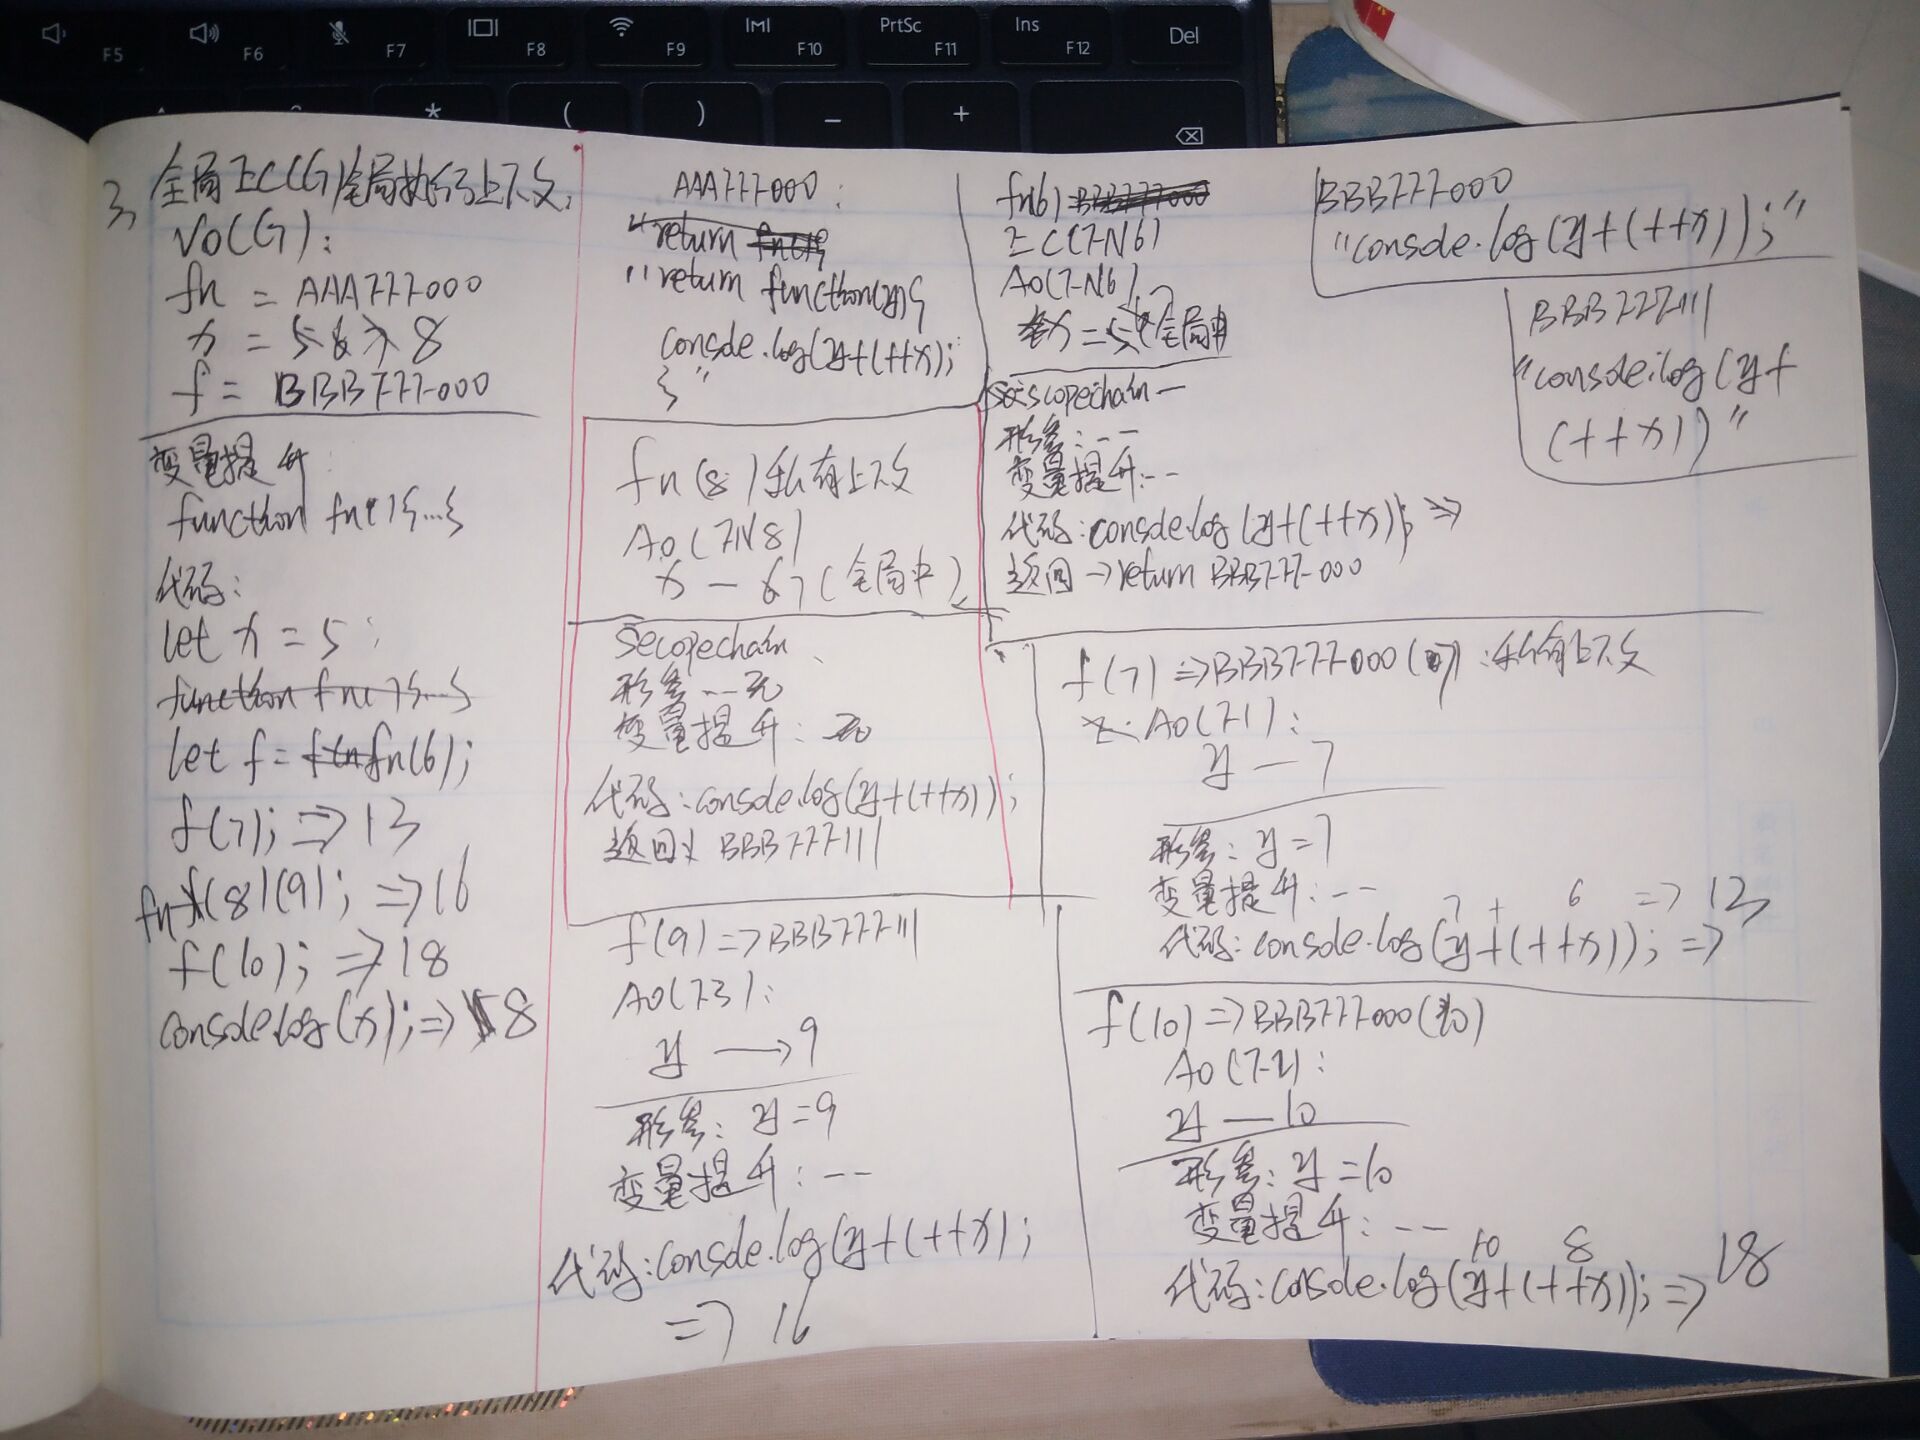 F5
F6
F7
F8
F9
F10
PrtSc
F11
Ins
F12
Del
*
(
)
-
+
3,
全局EC(G)全局执行上下文.
VO(G):
fn = AAA777000
x = 5 6 7 8
f = BBB777000
变量提升:
function fn(){...}
代码:
let x = 5;
function fn(){...}
let f = fn(6);
f(7); => 13
fn(8)(9); => 16
f(10); => 18
console.log(x); => 8
AAA777000:
"return
"return function(y){
console.log(y+(++x);
}"
fn(8)私有上下文
AO(FN8)
x - 67(全局中)
Secopechain
形参--无
变量提升:无
代码:console.log(y+(++x));
返回 BBB777111
f(9)=>BBB777111
AO(F3):
y → 9
形参: y=9
变量提升: --
代码:console.log(y+(++x);
=> 16
fn(6) BBB777000
EC(FN6)
AO(FN6)
x = 5 (全局中)
scopechain -
形参: --
变量提升: --
代码:console.log(y+(++x)); =>
返回→return BBB777000
BBB777000
"console.log(y+(++x));"
BBB777111
"console.log(y+
(++x))"
f(7)=>BBB777000(7):私有上下文
AO(F1):
y - 7
形参: y=7
变量提升: --
7 + 6 => 13
代码:console.log(y+(++x)); =>
f(10)=>BBB777000(10)
AO(F2):
y - 10
形参: y=10
变量提升: --
10 8
代码:console.log(y+(++x)); => 18